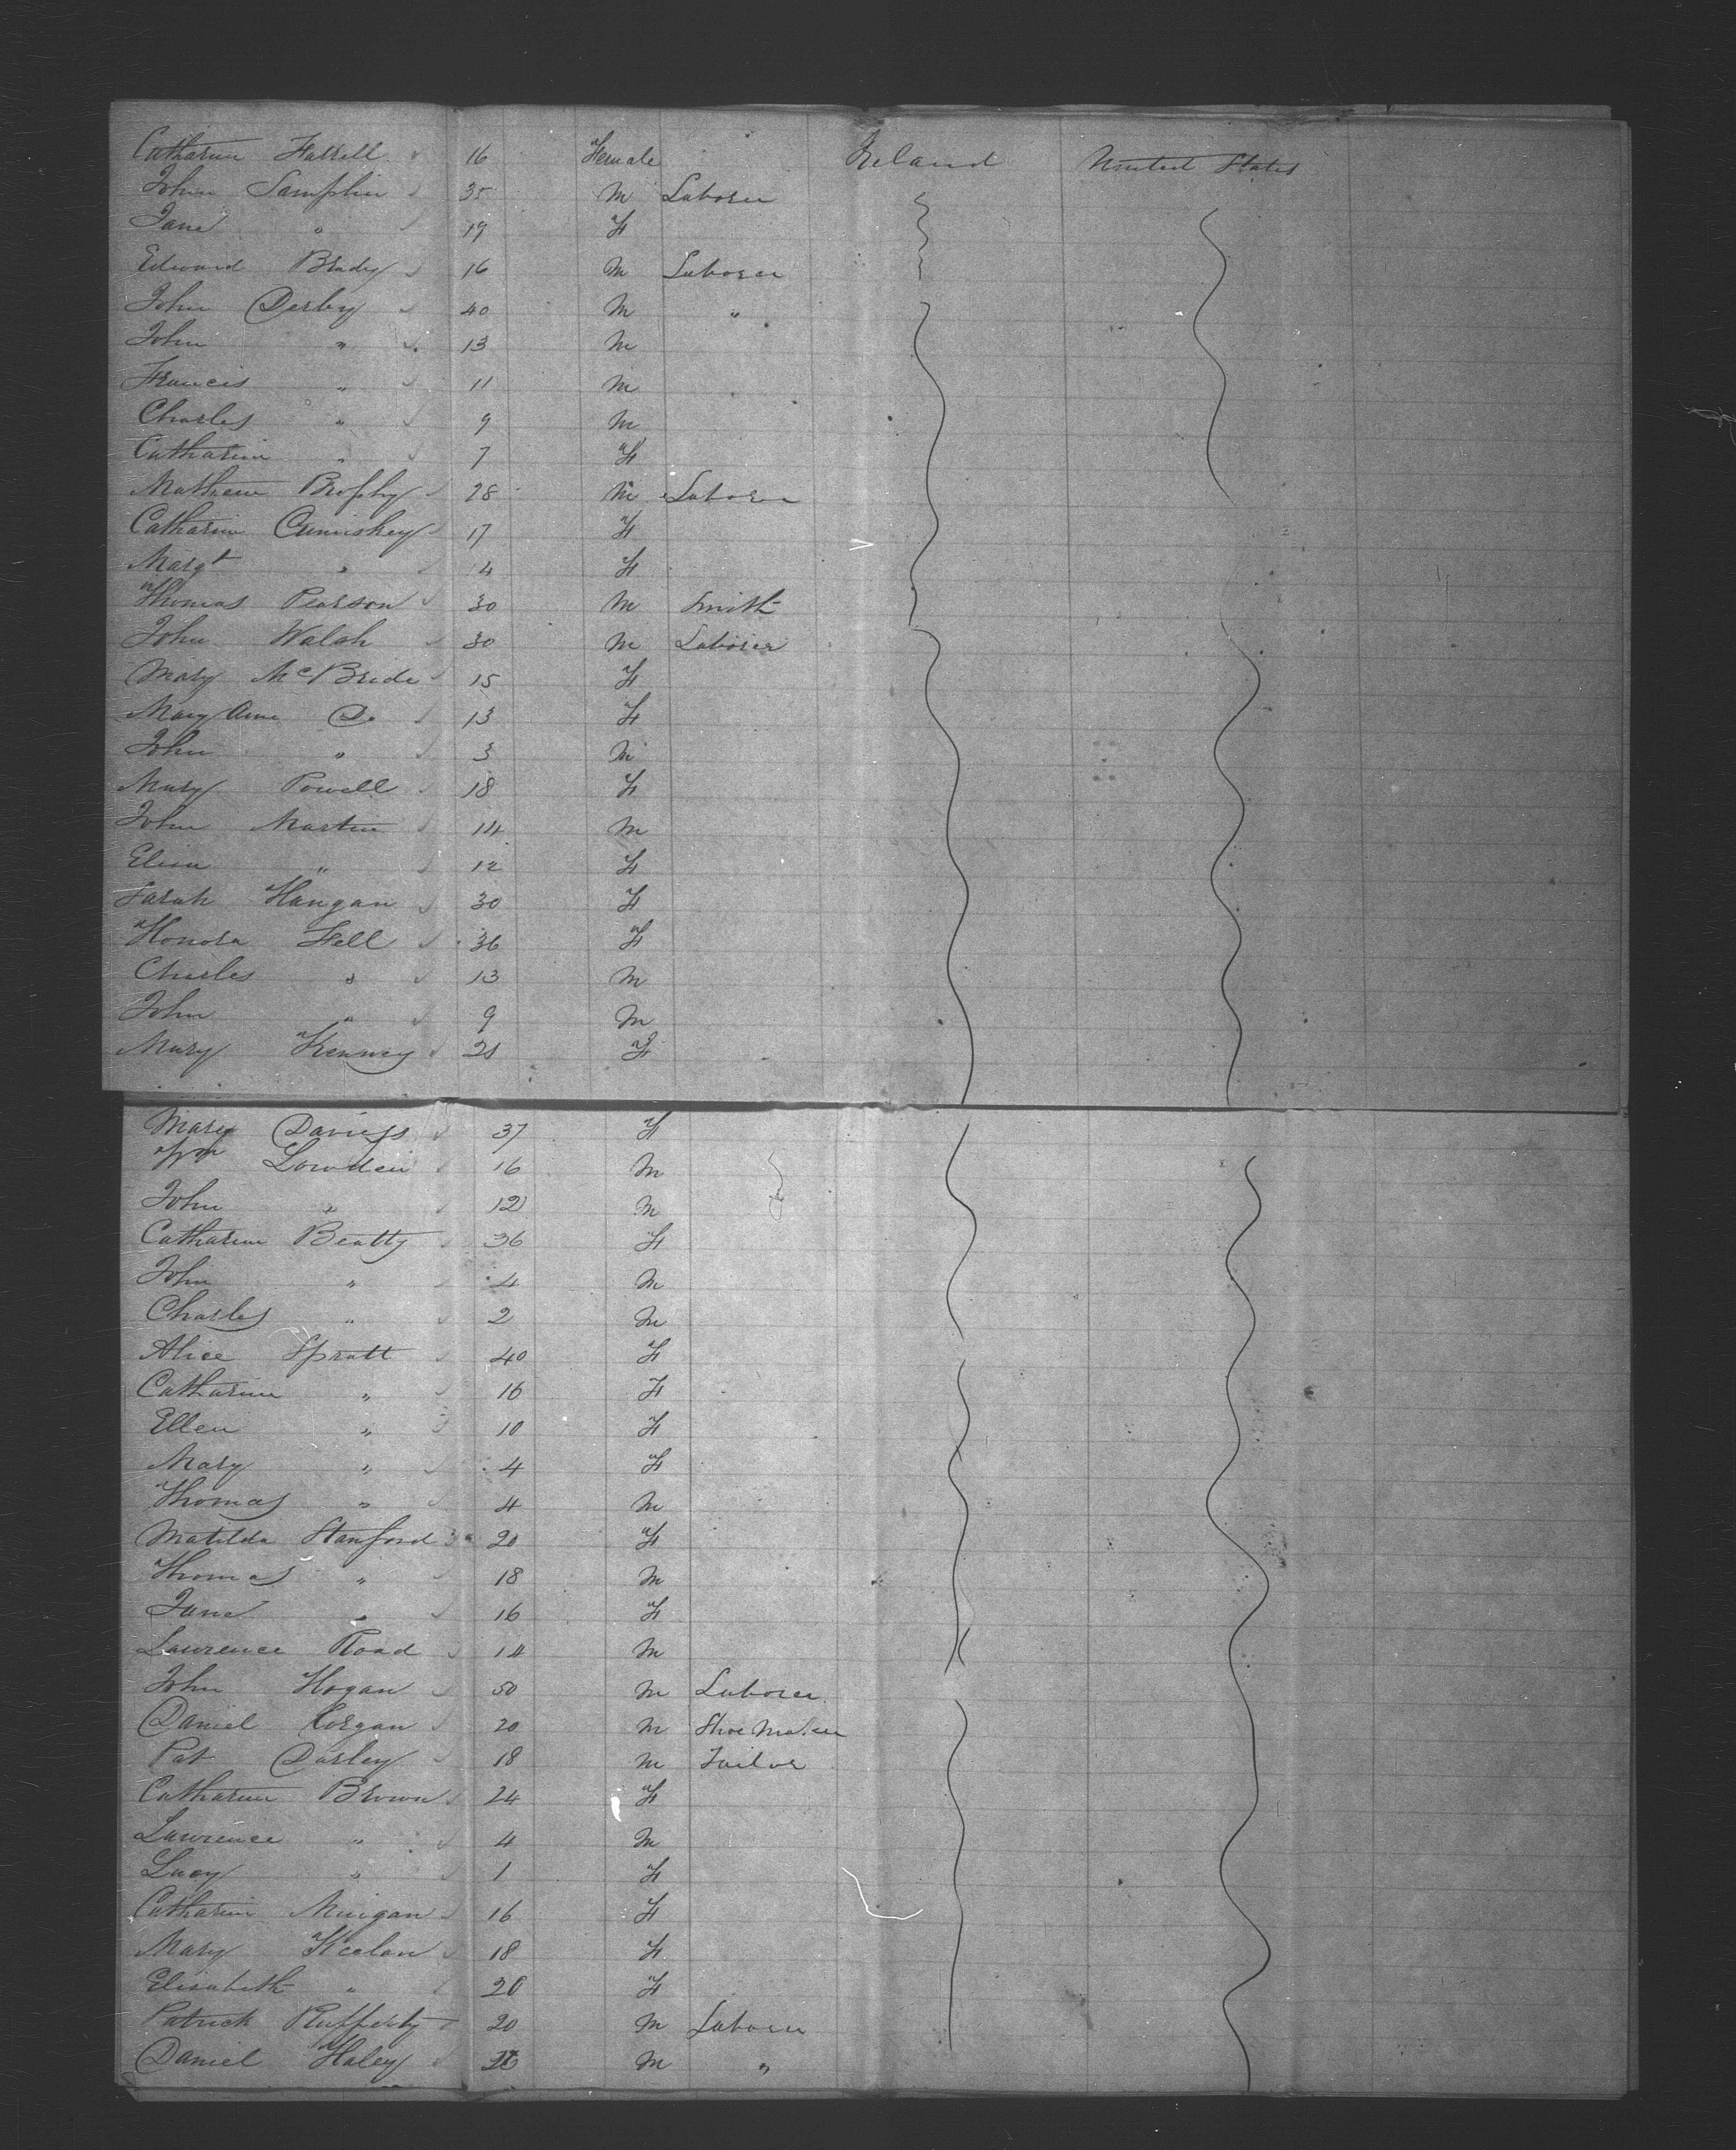 Catharine Farrell 16 Female Ireland United States
John Samplin 35 M Laborer
Jane " 19 F
Edward Brady 16 M Laborer
John Derby 40 M "
John " 13 M
Francis " 11 M
Charles " 9 M
Catharine " 7 F
Mathew Brophy 28 M Laborer
Catharine Cumiskey 17 F
Margt " 4 F
Thomas Pearson 30 M Smith
John Walsh 30 M Laborer
Mary McBride 15 F
Mary Ann Do 13 F
John " 3 M
Mary Powell 18 F
John Martin 14 M
Eliza " 12 F
Sarah Hangan 30 F
Honora Fell 36 F
Charles " 13 M
John " 9 M
Mary Kenney 21 F
Mary Daviess 37 F
Wm Lowden 16 M
John " 12 M
Catharine Beatty 36 F
John " 4 M
Charles " 2 M
Alice Spratt 40 F
Catharine " 16 F
Ellen " 10 F
Mary " 4 F
Thomas " 4 M
Matilda Stanford 20 F
Thomas " 18 M
Jane " 16 F
Lawrence Road 14 M
John Hogan 50 M Laborer
Daniel Corgan 20 M Shoe Maker
Pat Darley 18 M Tailor
Catharine Brown 24 F
Lawrence " 4 M
Lucy " 1 F
Catharine Minigan 16 F
Mary Keelan 18 F
Elisabeth " 20 F
Patrick Rafferty 20 M Laborer
Daniel Haley M "